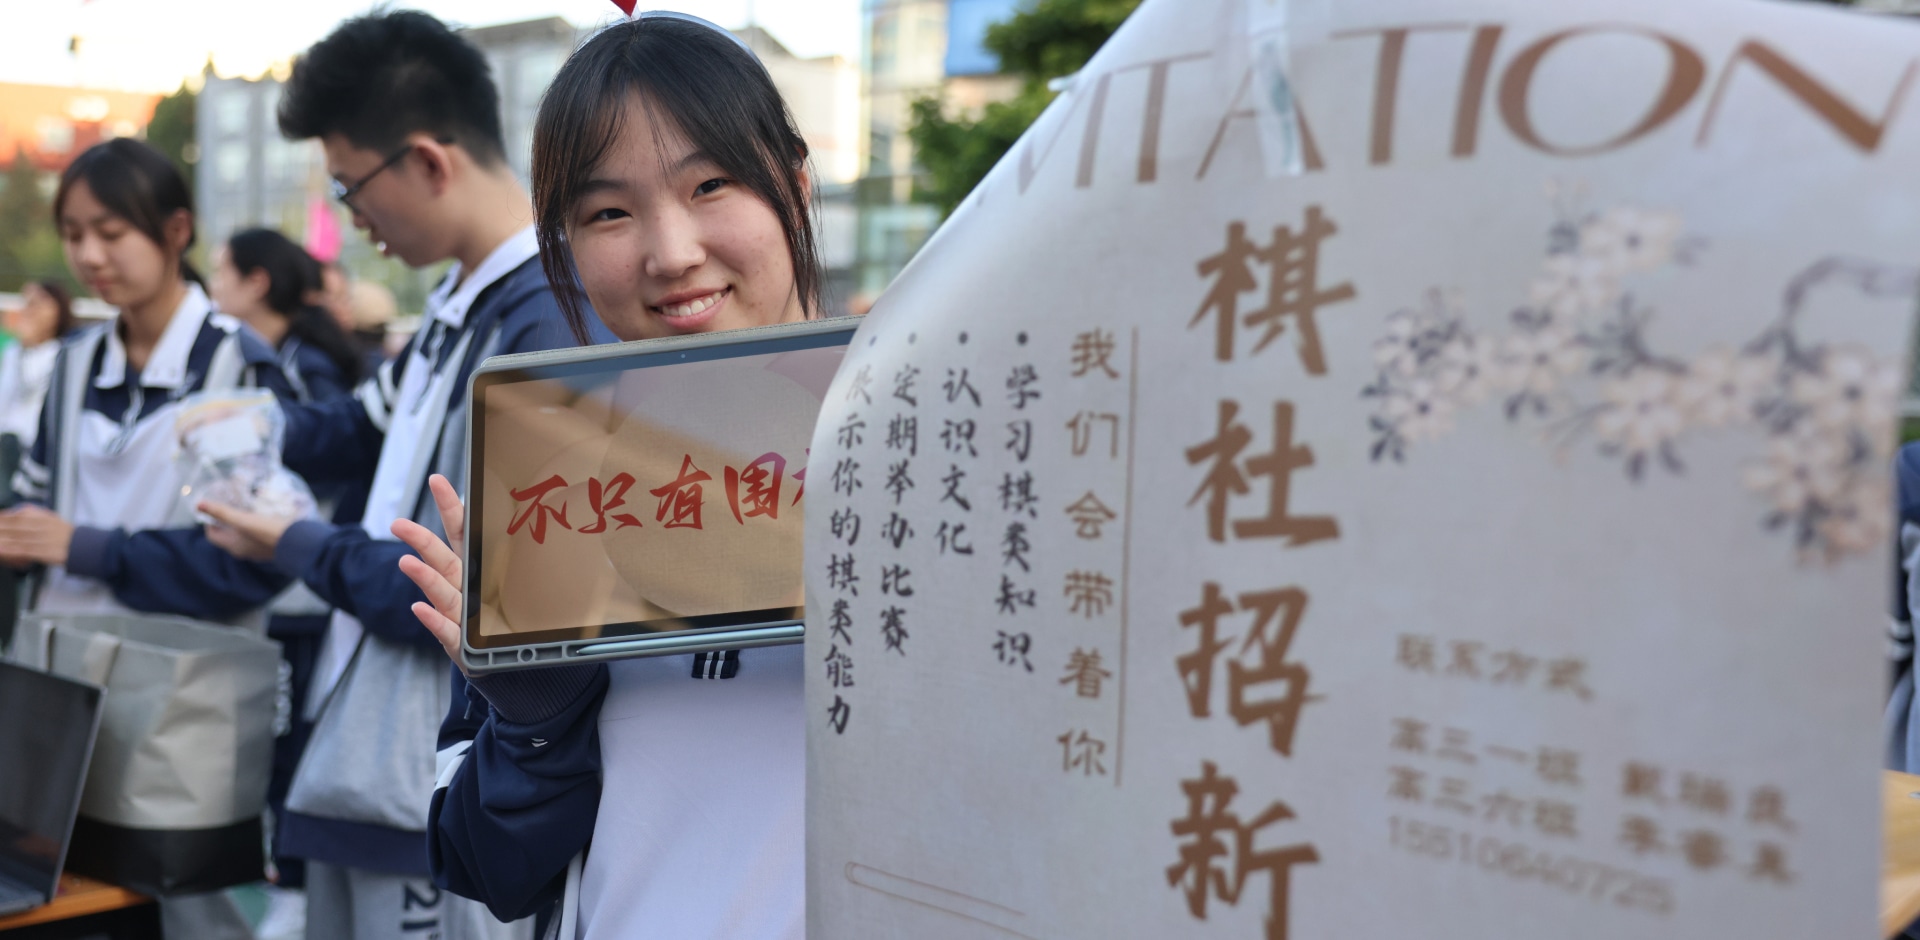 不只有围
VITATION
棋社招新
我们会带着你
·学习棋类知识
·认识文化
·定期举办比赛
·展示你的棋类能力
联系方式
高三一班 戴瑞良
高三六班 李睿
15510640725